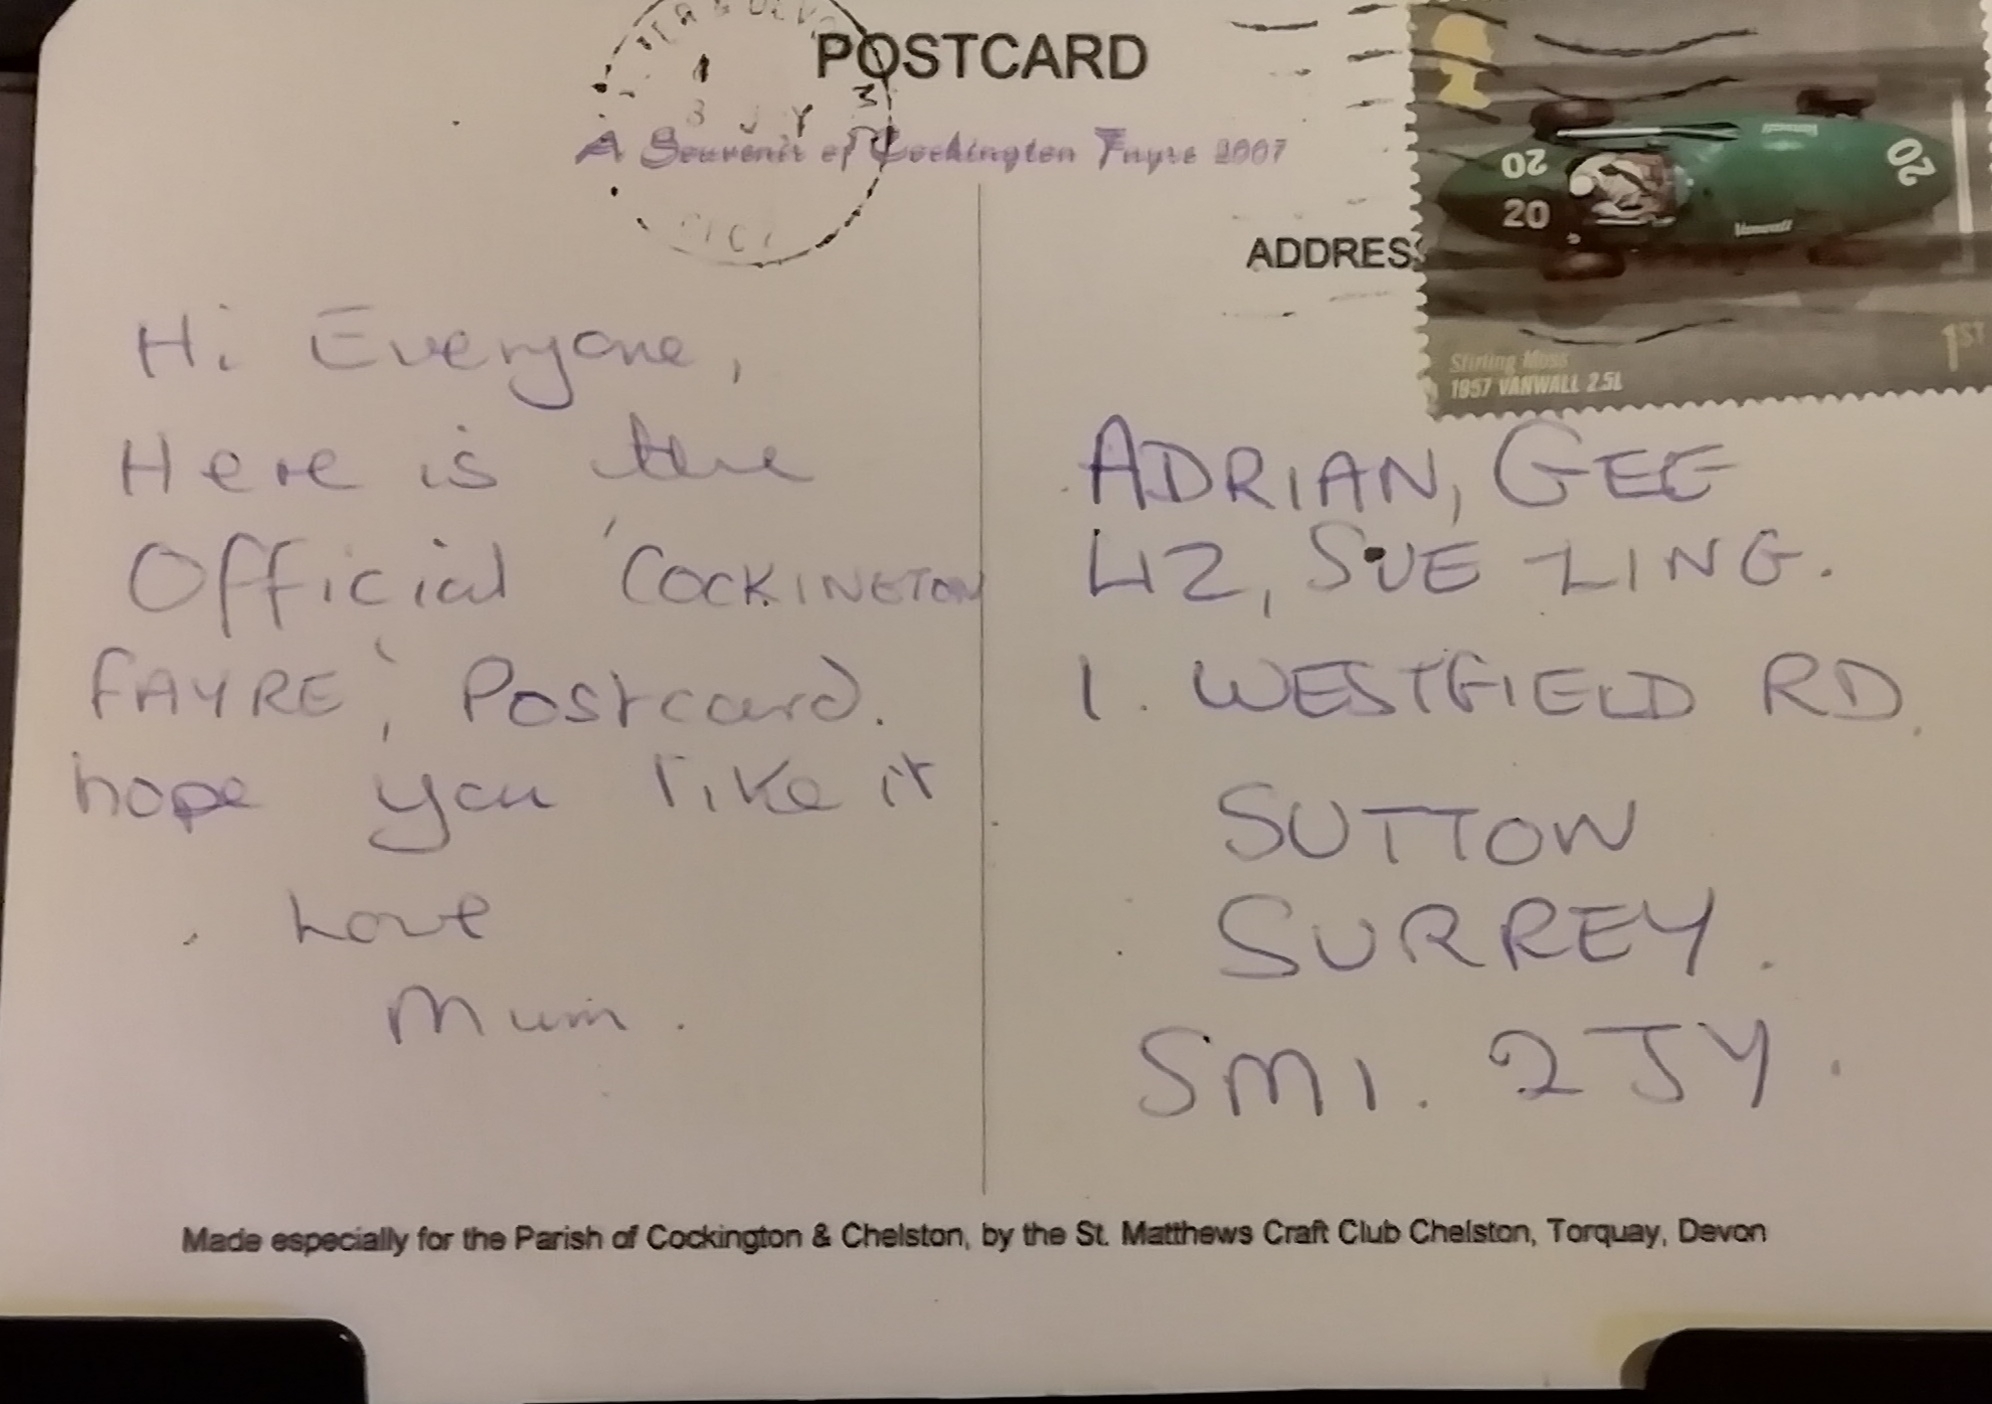 POSTCARD
A Souvenir of Cockington Fayre 2007
ADDRESS
20
20
20
Vanwall
Vanwall
Stirling Moss
1957 VANWALL 2.5L
1ST
Hi Everyone,
Here is the
Official 'COCKINGTON
FAYRE', Postcard.
hope you like it
Love
Mum.
ADRIAN, GEE
LIZ, SUE LING.
1. WESTFIELD RD.
SUTTON
SURREY.
SM1. 2JY.
Made especially for the Parish of Cockington & Chelston, by the St. Matthews Craft Club Chelston, Torquay, Devon